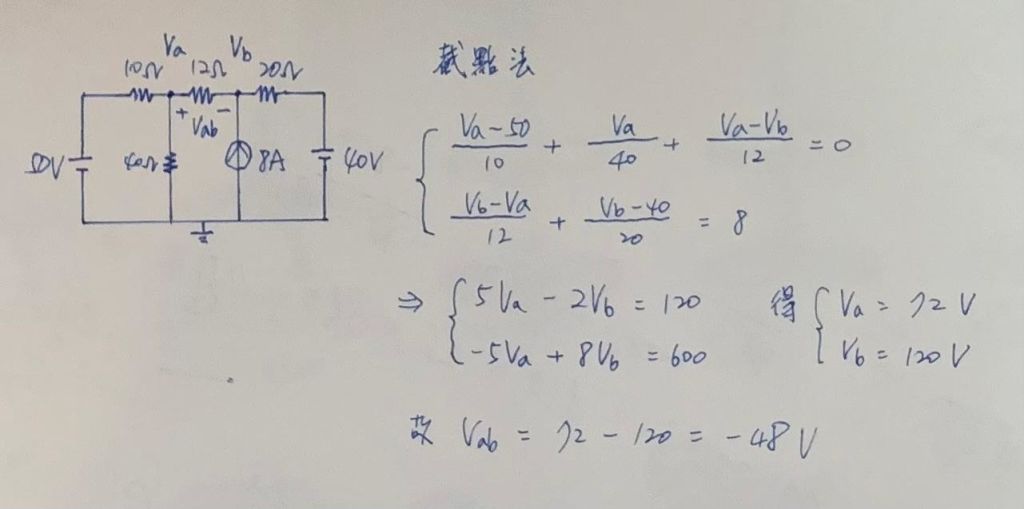 Va Vb
10Ω 12Ω 20Ω
+ Vab −
50V 40Ω 8A 40V
截點法
(Va − 50)/10 + Va/40 + (Va − Vb)/12 = 0
(Vb − Va)/12 + (Vb − 40)/20 = 8
⇒ { 5Va − 2Vb = 120
−5Va + 8Vb = 600
得 { Va = 72 V
Vb = 120 V
故 Vab = 72 − 120 = −48 V